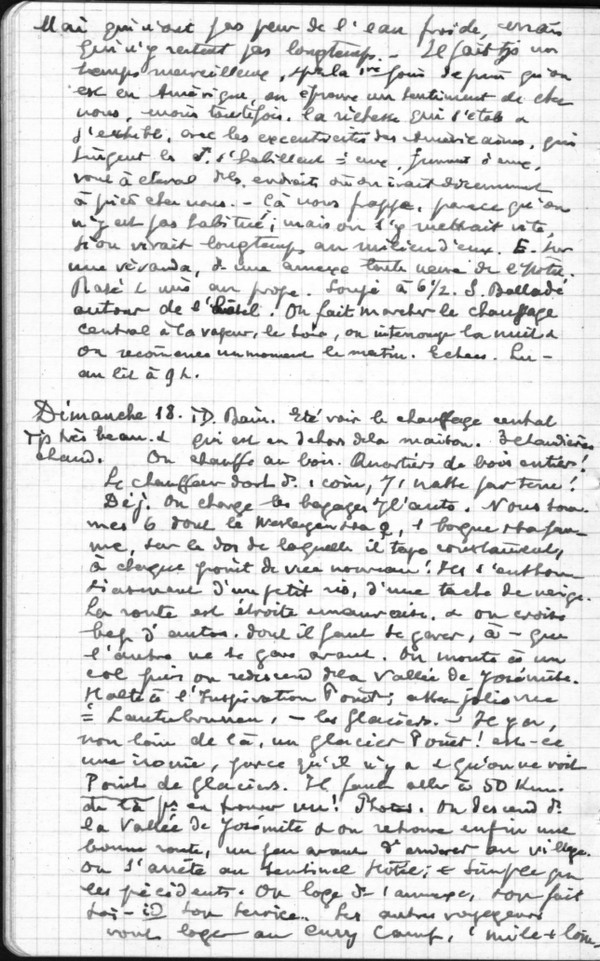 Mai qui n'ont pas peur de l'eau froide, mais
qui n'y restent pas longtemps. - Il fait tjs un
temps merveilleux, pr la 1re fois depuis qu'on
est en Amérique, on éprouve un sentiment de chez
nous, mais toutefois, la richesse qui s'étale &
s'exhibe, avec les excentricités des Américaines, qui
singent les s'habillent = eux, fument d'eux,
vont à cheval ds les endroits où on irait
à pied chez nous. - Çà nous frappe, parce qu'on
n'y est pas habitué; mais on s'y mettrait vite,
si on vivait longtemps au milieu d'eux. E. sur
une véranda, ds une annexe toute neuve de l'hôtel.
Rasé & mis au propre. Soupé à 6 1/2. S. Balladé
autour de l'hôtel. On fait marcher le chauffage
central à la vapeur, le soir, on interrompt la nuit &
on recommence un moment le matin. Echecs. Lu -
au lit à 9 h.
Dimanche 18. iD. Bain. Eté voir le chauffage central
tjs très beau & qui est en dehors de la maison. 3 chaudières
chaud. On chauffe au bois. Quartiers de bois entiers!
Le chauffeur dort ds 1 coin, s/ 1 natte par terre!
Déj. On charge les bagages s/ l'auto. Nous som-
mes 6 dont le 1 & sa fem-
me, sur le dos de laquelle il tape constamment,
à chaque point de vue nouveau! Ils s'enthou-
siasment d'un petit rio, d'une tache de neige.
La route est étroite & mauvaise. & on croise
bcp d'autos. dont il faut se garer, à - que
l'autre ne se gare avant. On monte à un
col puis on redescend ds la Vallée de Yosémite.
Halte à l'Inspiration Point; assez jolie vue
= Lauterbrunnen, - les glaciers. - Il y a,
non loin de là, un glacier Point! est-ce
une ironie, parce qu'il n'y a & qu'on ne voit
Point de glaciers. Il faut aller à 50 Km.
de là pr en trouver un! Photos. On descend ds
la Vallée de Yosémite & on retrouve enfin une
bonne route, un peu avant d'arriver au village.
On s'arrête au Sentinel Hôtel; + simple que
les précédents. On loge ds l'annexe, & on fait
soi-iD son service. Les autres voyageurs
vont loger au Curry Camp, 1 mile + loin,